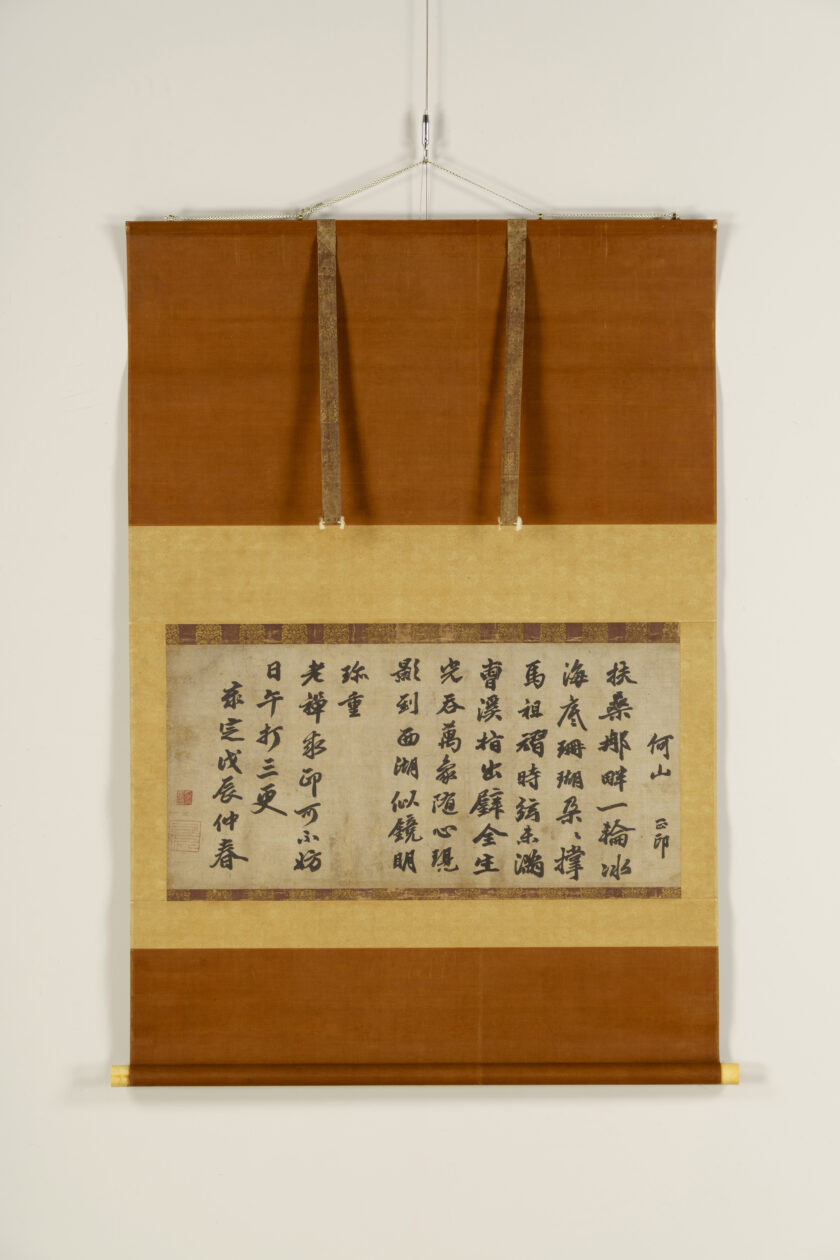 何山 正印
扶桑那畔一輪冰
海底珊瑚朶〻撐
馬祖翫時弦未滿
曹溪指出璧全生
光吞萬象随心現
影到西湖似鏡明
珍重
老禅求印可不妨
日午打三更
泰定戊辰仲春